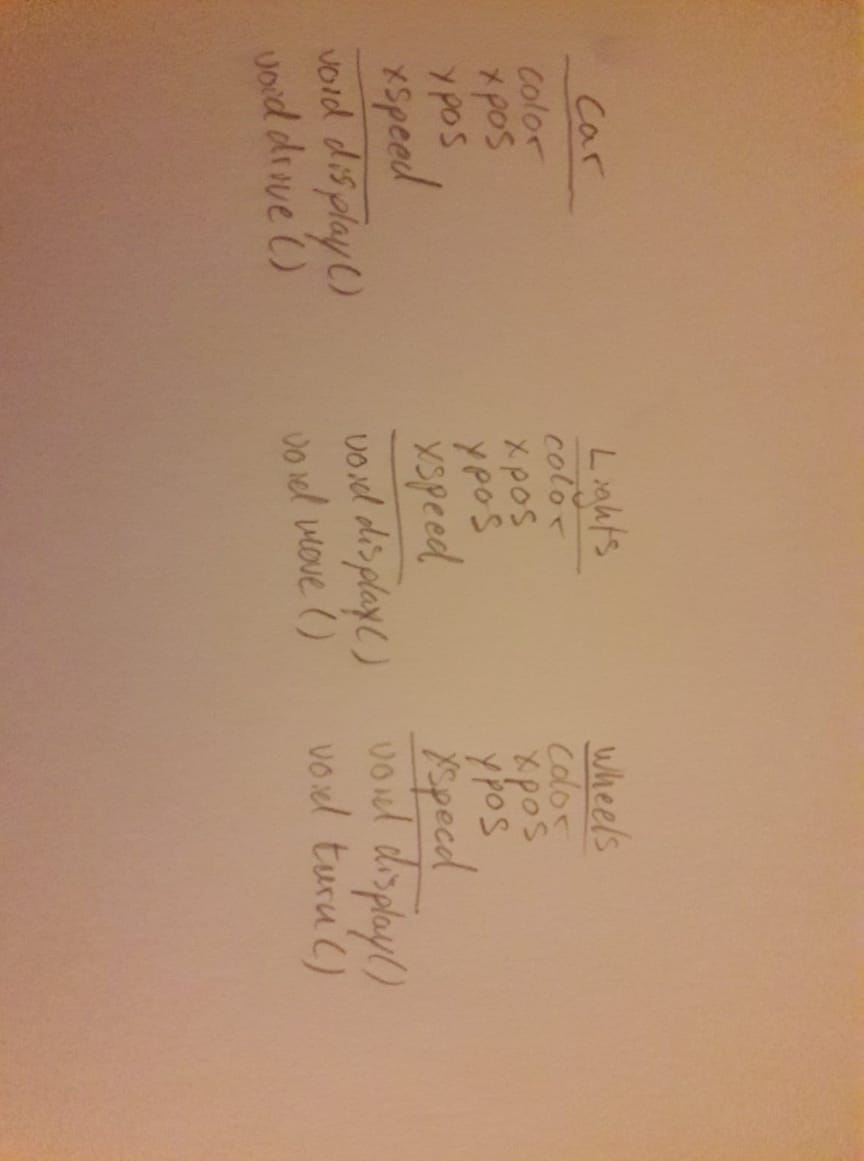 Car
color
xpos
ypos
xspeed
void display()
void drive()
Lights
color
xpos
ypos
xspeed
void display()
void move()
Wheels
color
xpos
ypos
xspeed
void display()
void turn()